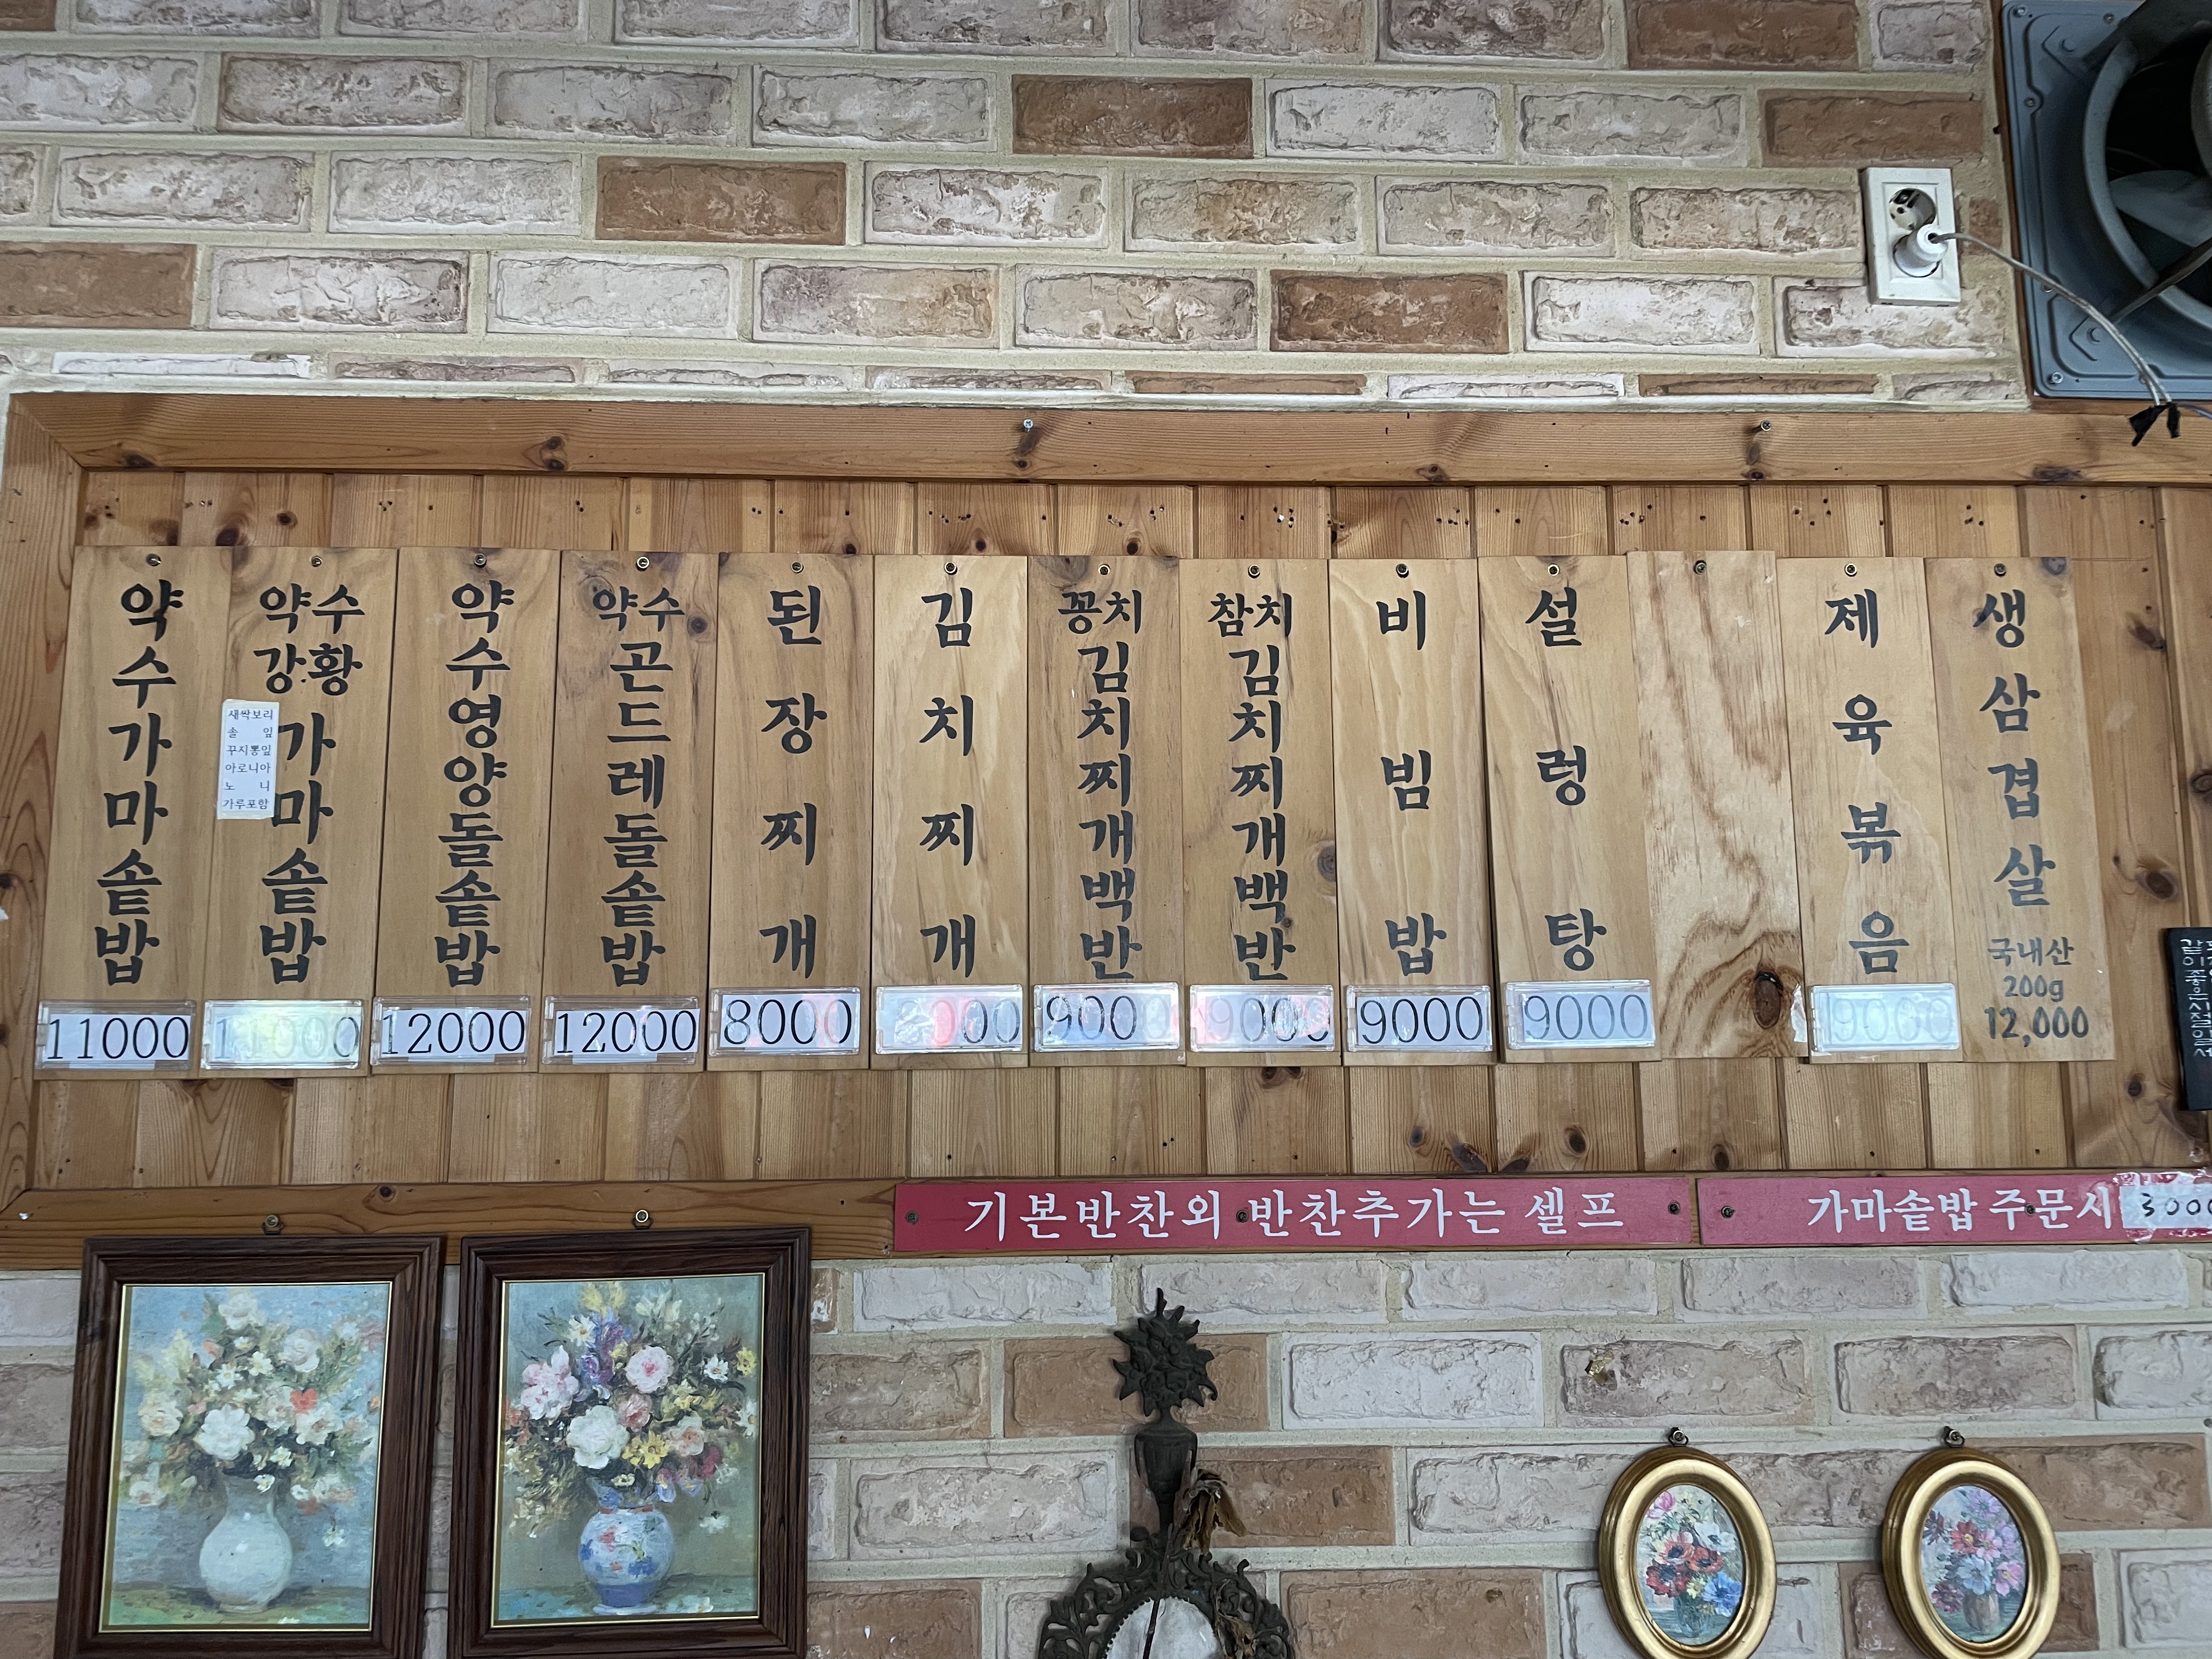 약수가마솥밥
11000
약수
강황
가마솥밥
새싹보리
솔 잎
꾸지뽕잎
아로니아
노 니
가루포함
약수영양돌솥밥
12000
약수
곤드레돌솥밥
12000
된장찌개
8000
김치찌개
꽁치
김치찌개백반
9000
참치
김치찌개백반
9000
비빔밥
9000
설렁탕
9000
제육볶음
9000
생삼겹살
국내산
200g
12,000
기본반찬외 반찬추가는 셀프
가마솥밥 주문시